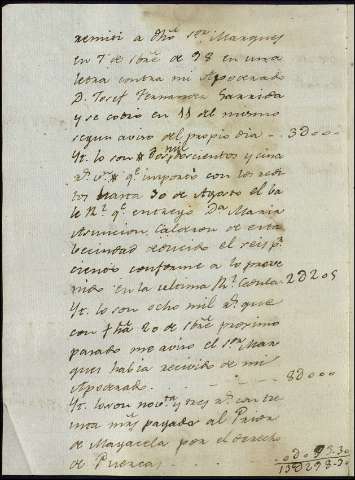 remití a dho Sor Marques
en 7 de 8bre de 98 en una
letra contra mi Apoderado
D. Josef Fernandez Garrida
y se cobró en 11 del mismo
segun aviso del propio dia -- 3D000
Yt. lo son dos mil doscientos y cinco
rs. vn. qe importó con los redi
tos hasta 30 de Agosto el Va
le Rl. qe entregó Da. Maria
Asuncion Calderon de esta
Vecindad reducido el seis pr.
ciento conforme a lo preve
nido en la ultima Rl. Cedula 2D205
Yt. lo son ocho mil rs. que
con fha 20 de 8bre proximo
pasado me avisó el Sor Mar
ques habia recivido de mi
Apoderado. --- 8D000
Yt. lo son nota. y tres rs. con tre
inta ms. pagado al Prior
de Magacela por el derecho
de Puercas. 0D093.30
13D298.30